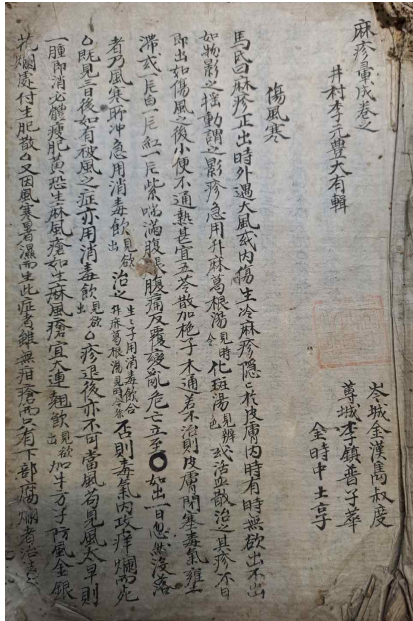 麻疹彙成卷之
井村李元豊大有輯
岑城金漢嶲叔度
蓴城李鎮普子萃
金時中士亨
傷風寒
馬氏曰麻疹正出時外遇大風或內傷生冷麻疹隱〻於皮膚內時有時無欲出不出
如物影之搖動謂之影疹急用升麻葛根湯見時令化斑湯見辨色或活血散治之其疹不日
即出如傷風之後小便不通熱甚宜五苓散加梔子木通若不治則皮膚閉塞毒氣壅
滯或一片白一片紅一片紫喘滿腹脹腹痛反覆變亂危亡立至〇如出一日忽然沒落
者乃風寒所冲急用消毒飲見欲出治之生生子用消毒飲合升麻葛根湯見時令否則毒氣內攻痒爛而死
〇既見三日後如有被風之症亦用消毒飲見欲出〇疹退後亦不可當風若見風太早則
一腫即消必體瘦肥黃恐生麻風瘡如生麻風瘡宜大連翹飲見欲出加生方子防風金銀
花爛處付生肥散〇又因風寒暑濕而生此症者雖無疳瘡而只有下部腐爛者治法